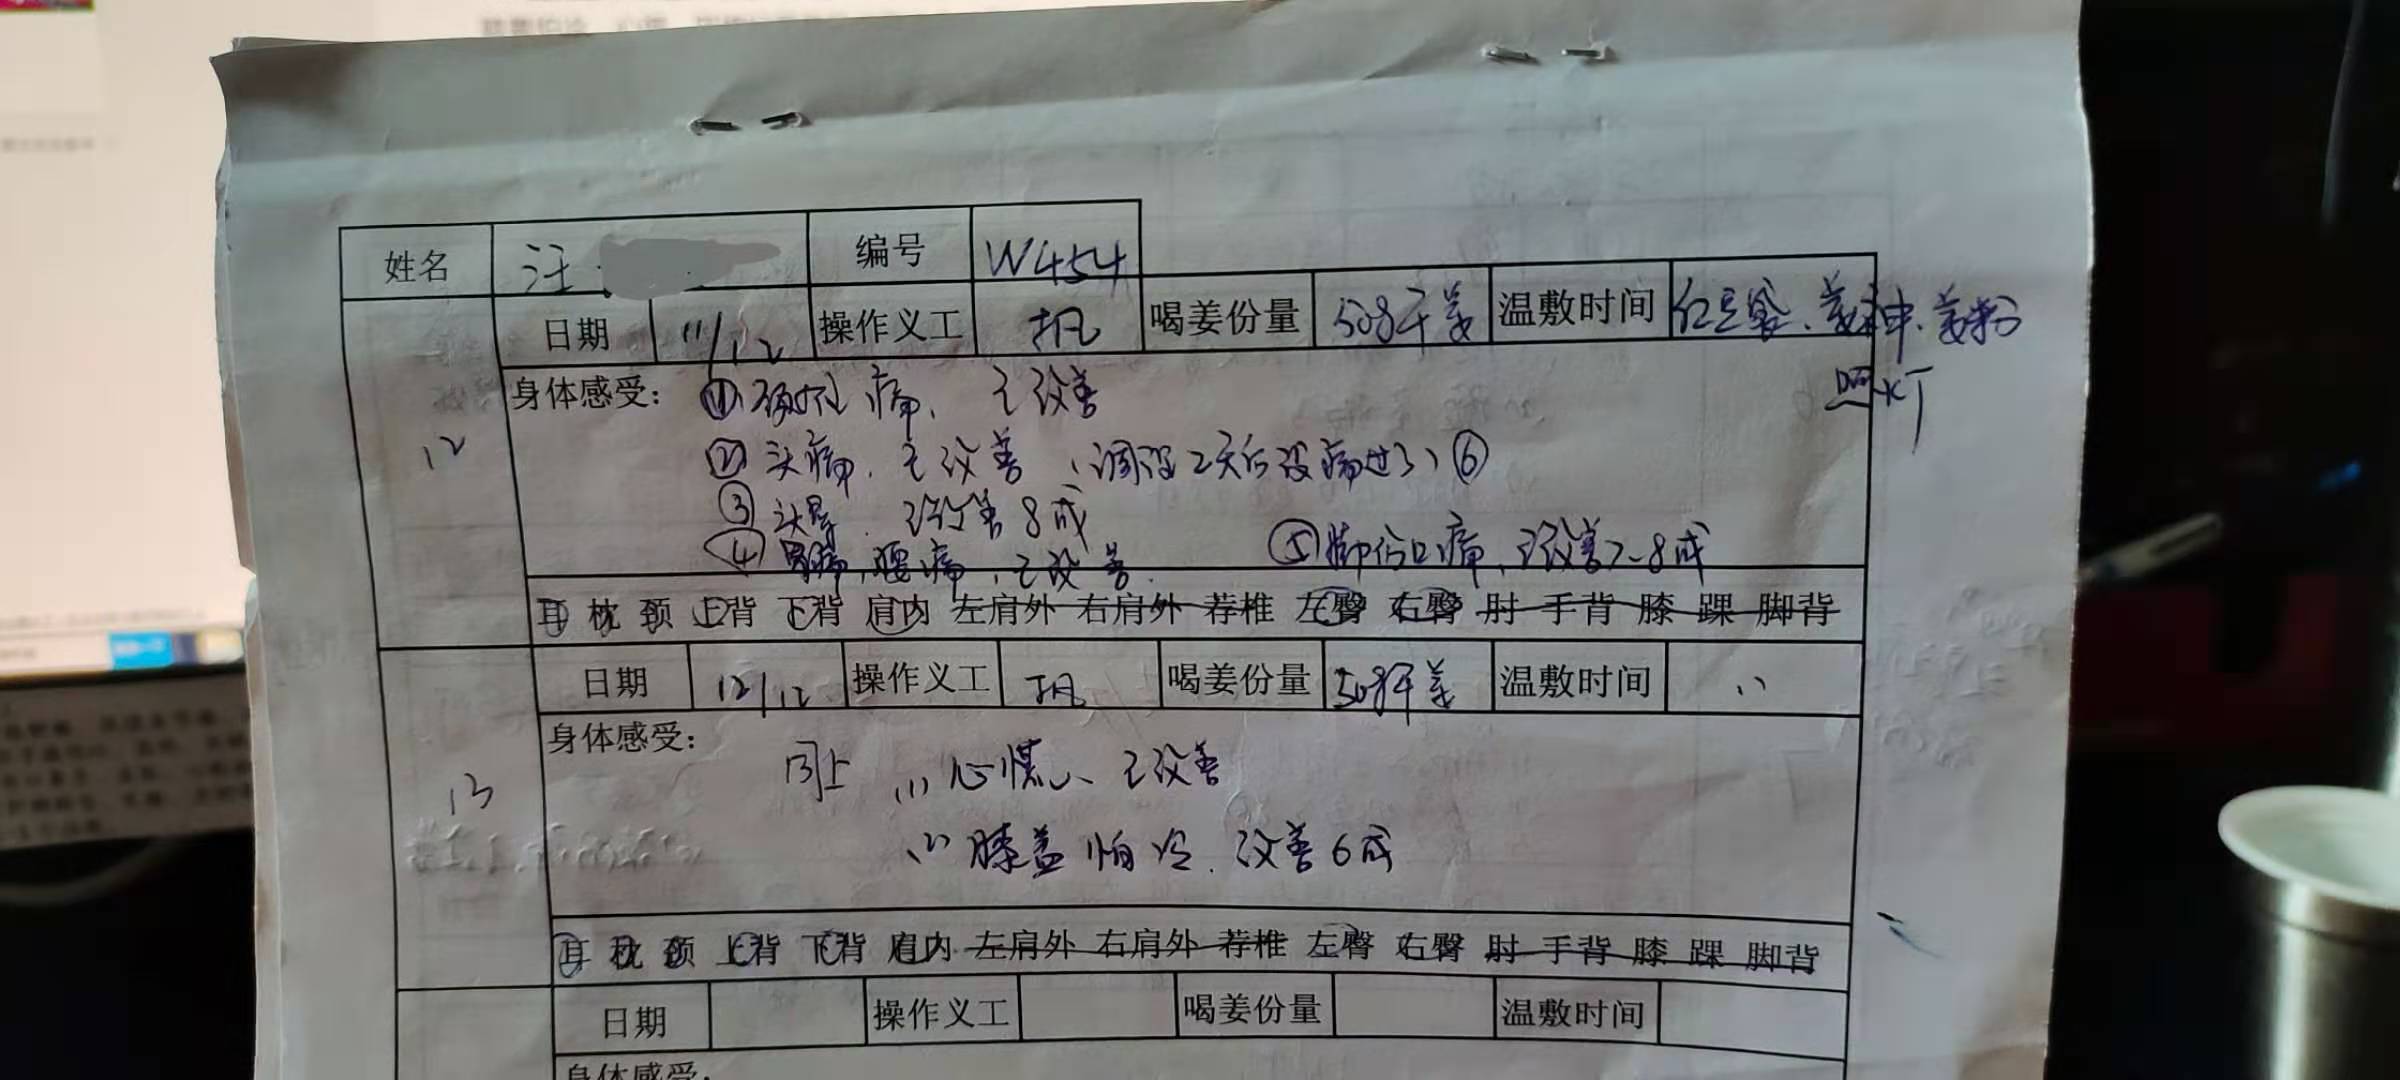 姓名 汪 编号 W454
日期 11/12 操作义工 喝姜份量 50g干姜 温敷时间 红豆袋、姜
姜粉
照灯
12
身体感受: ① 痛、已改善
② 头痛、已改善 (调理2天后没痛过了) ⑥
③ 头晕、已改善8成
④ 胃痛,腰痛,已改善. ⑤脚伤口痛,已改善7-8成
耳 枕 颈 上背 下背 肩内 左肩外 右肩外 荐椎 左臀 右臀 肘 手背 膝 踝 脚背
日期 12/12 操作义工 喝姜份量 50g干姜 温敷时间 \\
13
身体感受:
同上 (1) 心慌、已改善
(2) 膝盖怕冷.改善6成
耳 枕 颈 上背 下背 肩内 左肩外 右肩外 荐椎 左臀 右臀 肘 手背 膝 踝 脚背
日期 操作义工 喝姜份量 温敷时间
身体感受: